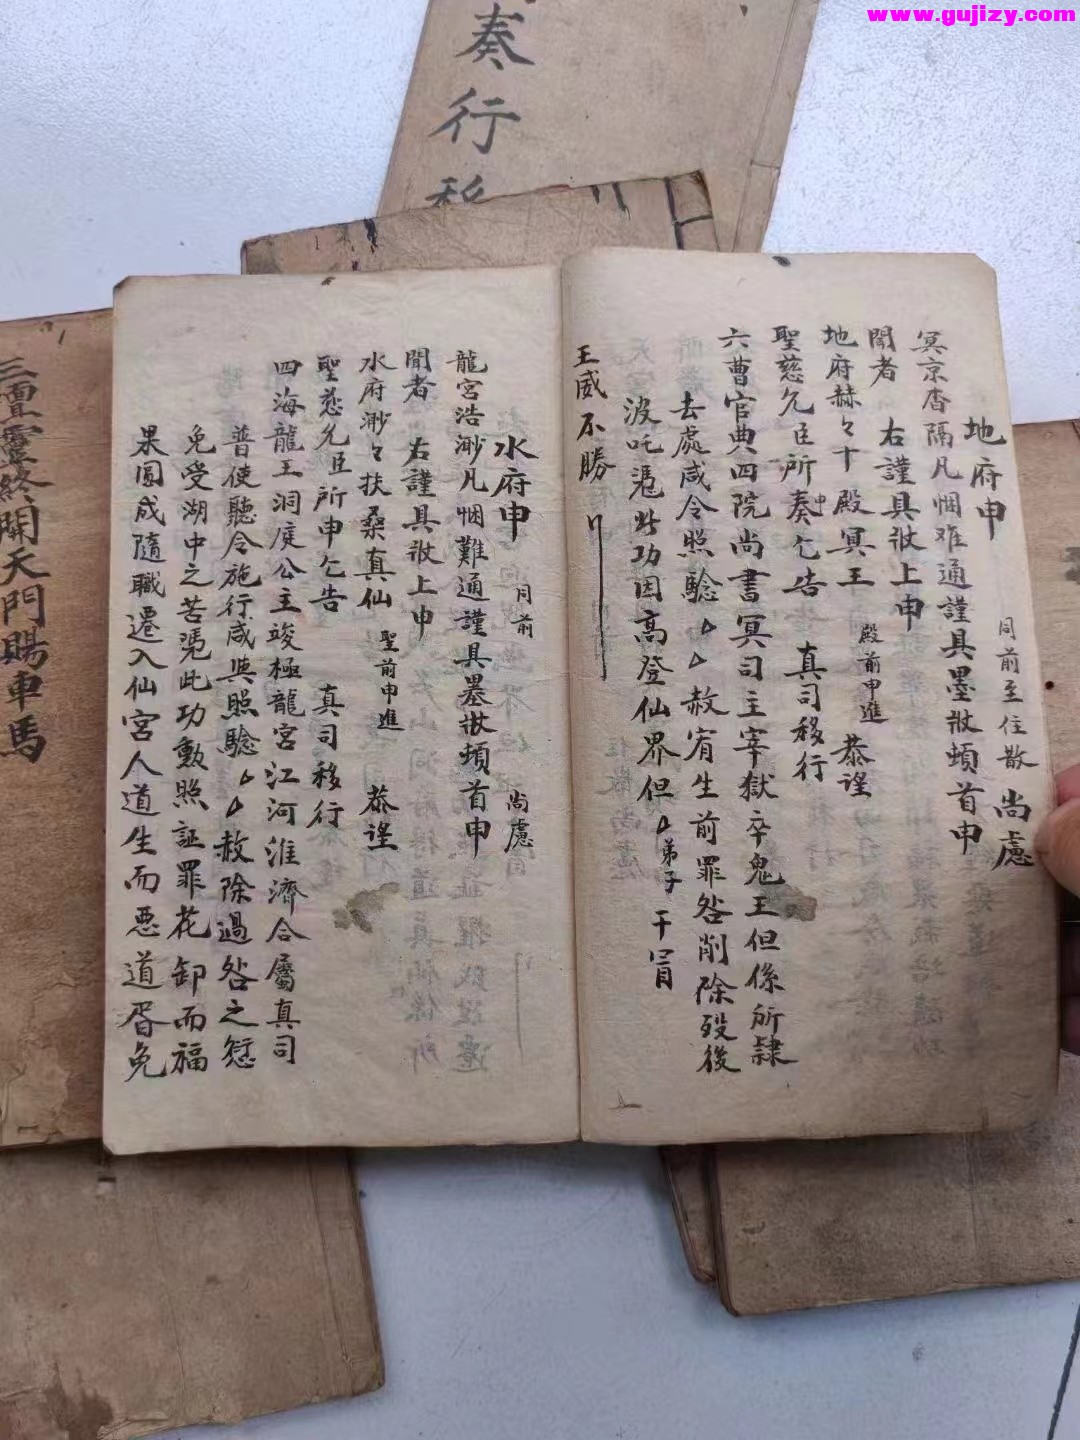 www.gujizy.com
奏行移
地府申 同前至任散 尚慮
冥京杳隔凡悃难通謹具墨狀頓首申
聞者 右謹具狀上申
地府赫々十殿冥王 殿前申進 恭望
聖慈允臣所奏申乞告 真司移行
六曹官典四院尚書冥司主宰獄卒鬼王但係所隸
去處咸令照驗厶厶赦宥生前罪咎削除歿後
波吒憑此功因高登仙界但厶弟子干冒
王威不勝
水府申 同前 尚慮
龍宮浩渺凡悃難通謹具墨狀頓首申
聞者 右謹具狀上申
水府渺々扶桑真仙 聖前申進 恭望
聖慈允臣所申乞告 真司移行
四海龍王洞庭公主竣極龍宮江河淮濟合屬真司
普使聽令施行咸與照驗厶厶赦除過咎之愆
免受湖中之苦憑此功勲照証罪花卸而福
果圓成隨職遷入仙宮人道生而惡道眉免
三壇靈終開天門賜車馬